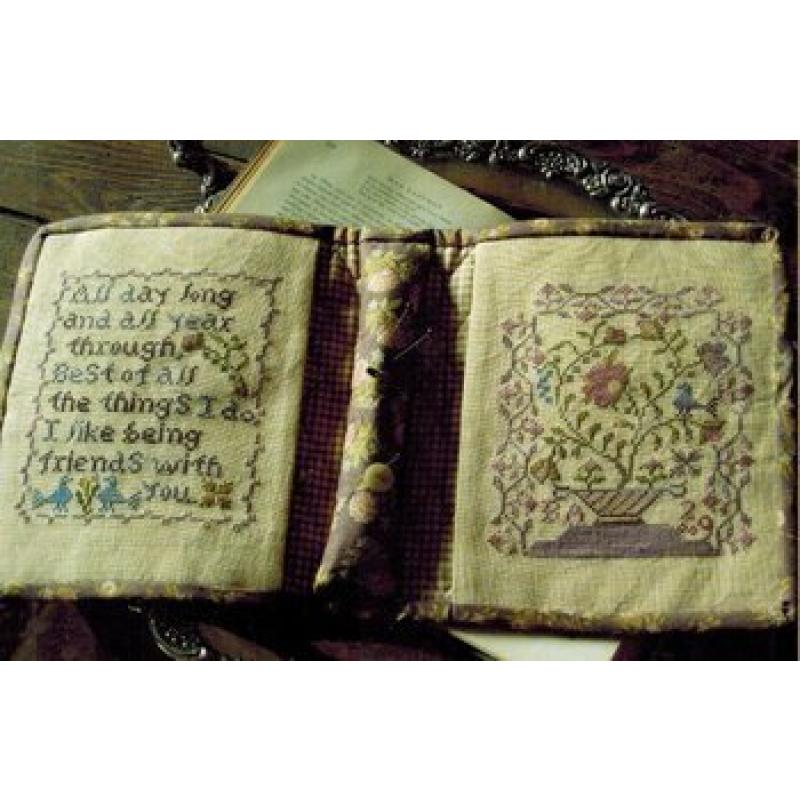 All day long
and all year
through,
Best of all
the things I do,
I like being
friends with
you